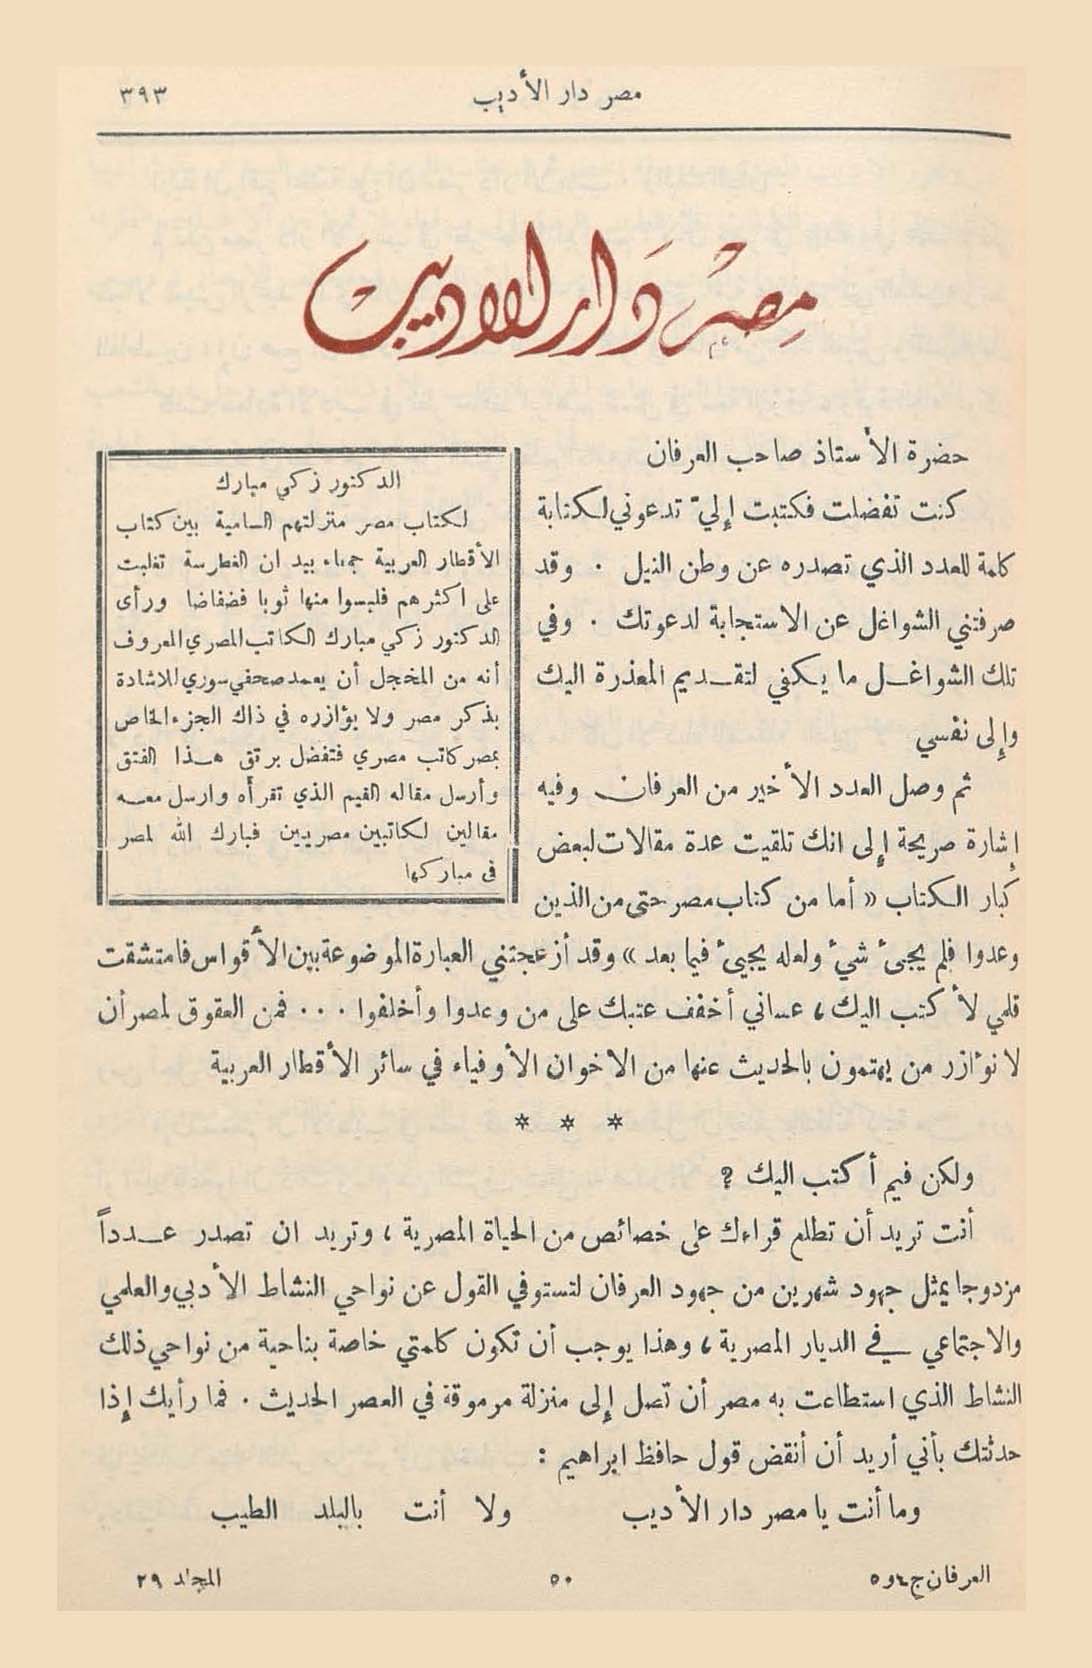 مصر دار الأديب
٣٩٣
مصر دار الاديب
حضرة الأستاذ صاحب العرفان
كنت تفضلت فكتبت إليّ تدعوني لكتابة
كلمة للعدد الذي تصدره عن وطن النيل . وقد
صرفتني الشواغل عن الاستجابة لدعوتك . وفي
تلك الشواغـل ما يكفي لتقـديم المعذرة اليك
وإلى نفسي
ثم وصل العدد الأخير من العرفان وفيه
إشارة صريحة إلى انك تلقيت عدة مقالات لبعض
كبار الكتاب « أما من كتاب مصر حتى من الذين
وعدوا فلم يجىء شيء ولعله يجيىء فيما بعد » وقد أزعجتني العبارة الموضوعة بين الأقواس فامتشقت
قلمي لأكتب اليك ، عساني أخفف عتبك على من وعدوا وأخلفوا ... فمن العقوق لمصر أن
لا نوءازر من يهتمون بالحديث عنها من الاخوان الأوفياء في سائر الأقطار العربية
الدكتور زكي مبارك
لكتاب مصر منزلتهم السامية بين كتاب
الأقطار العربية جمعاء بيد ان الغطرسة تغلبت
على اكثرهم فلبسوا منها ثوبا فضفاضا ورأى
الدكتور زكي مبارك الكاتب المصري المعروف
أنه من المخجل أن يعمد صحفي سوري للاشادة
بذكر مصر ولا يوءازره في ذاك الجزء الخاص
بمصر كاتب مصري فتفضل برتق هـذا الفتق
وأرسل مقاله القيم الذي تقرأه وارسل معـه
مقالين لكاتبين مصريين فبارك الله لمصر
في مباركها
* * *
ولكن فيم أكتب اليك ؟
أنت تريد أن تطلع قراءك على خصائص من الحياة المصرية ، وتريد ان تصدر عـدداً
مزدوجا يمثل جهود شهرين من جهود العرفان لتستوفي القول عن نواحي النشاط الأدبي والعلمي
والاجتماعي في الديار المصرية ، وهذا يوجب أن تكون كلمتي خاصة بناحية من نواحي ذلك
النشاط الذي استطاعت به مصر أن تصل إلى منزلة مرموقة في العصر الحديث . فما رأيك إذا
حدثتك بأني أريد أن أنقض قول حافظ ابراهيم :
وما أنت يا مصر دار الأديب ولا أنت بالبلد الطيب
العرفان ج ٤ و ٥
٥٠
المجلد ٢٩